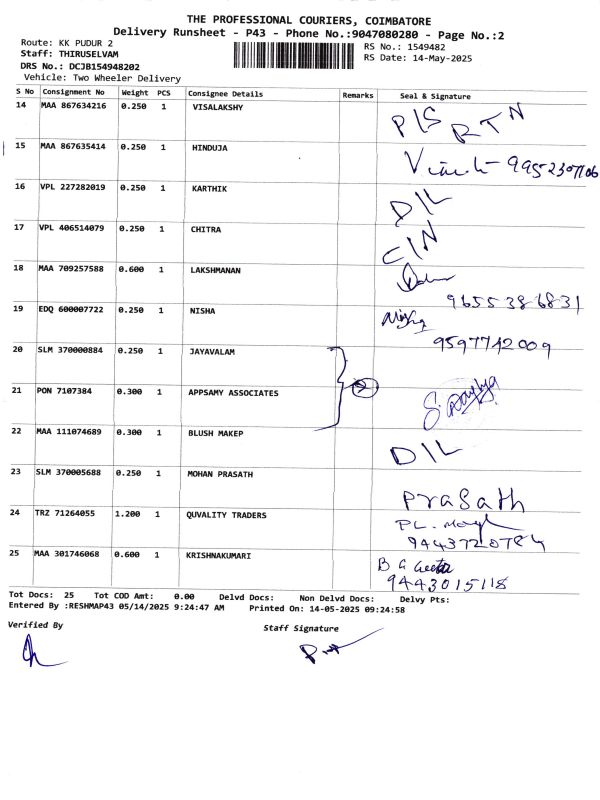 THE PROFESSIONAL COURIERS, COIMBATORE
Delivery Runsheet - P43 - Phone No.:9047080280 - Page No.:2
Route: KK PUDUR 2
RS No.: 1549482
Staff: THIRUSELVAM
RS Date: 14-May-2025
DRS No.: DCJB154948202
Vehicle: Two Wheeler Delivery
S No Consignment No Weight PCS Consignee Details Remarks Seal & Signature
14 MAA 867634216 0.250 1 VISALAKSHY P/S RTN
15 MAA 867635414 0.250 1 HINDUJA
16 VPL 227282019 0.250 1 KARTHIK D/L
17 VPL 406514079 0.250 1 CHITRA C/N
18 MAA 709257588 0.600 1 LAKSHMANAN
9655386831
19 EDQ 600007722 0.250 1 NISHA
9597742009
20 SLM 370000884 0.250 1 JAYAVALAM
21 PON 7107384 0.300 1 APPSAMY ASSOCIATES
22 MAA 111074689 0.300 1 BLUSH MAKEP D/L
23 SLM 370005688 0.250 1 MOHAN PRASATH
Prasath
24 TRZ 71264055 1.200 1 QUVALITY TRADERS
25 MAA 301746068 0.600 1 KRISHNAKUMARI B G Geetha
9443015118
Tot Docs: 25 Tot COD Amt: 0.00 Delvd Docs: Non Delvd Docs: Delvy Pts:
Entered By :RESHMAP43 05/14/2025 9:24:47 AM Printed On: 14-05-2025 09:24:58
Verified By
Staff Signature